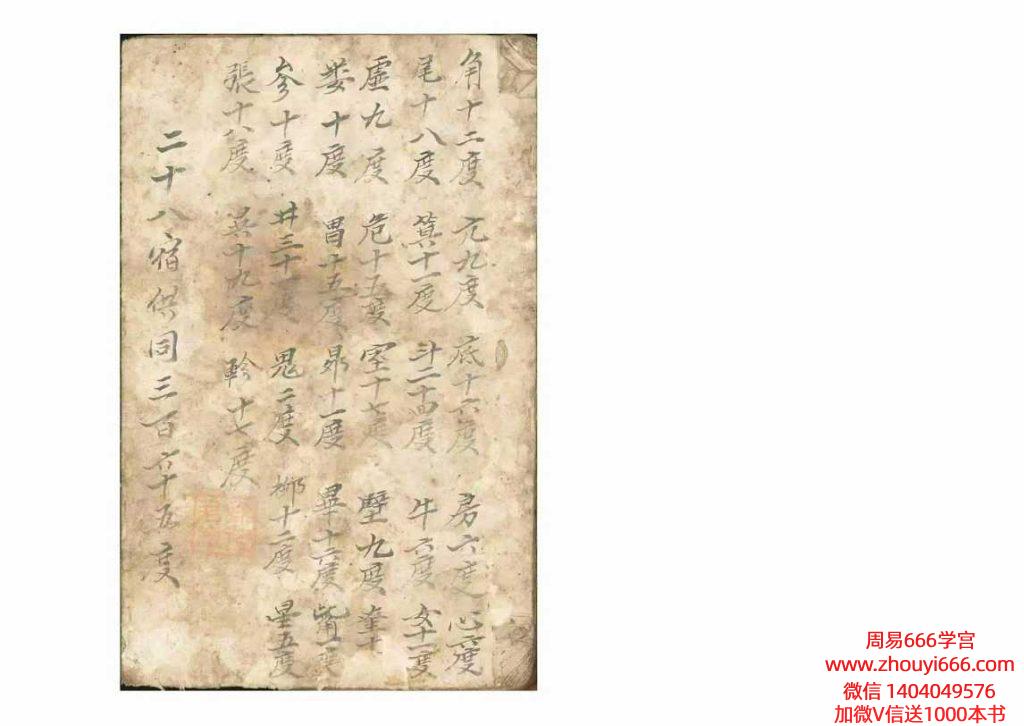 角十二度 亢九度 底十六度 房六度 心六度
尾十八度 箕十一度 斗二十四度 牛六度 女十一度
虚九度 危十五度 室十七度 壁九度 奎十
娄十度 胃十五度 昴十一度 畢十六度 觜一度
参十度 井三十一度 鬼二度 柳十二度 星五度
張十八度 巽十九度 軫十七度
二十八宿供同三百六十五度
周易666学宫
www.zhouyi666.com
微信 1404049576
加微V信送1000本书